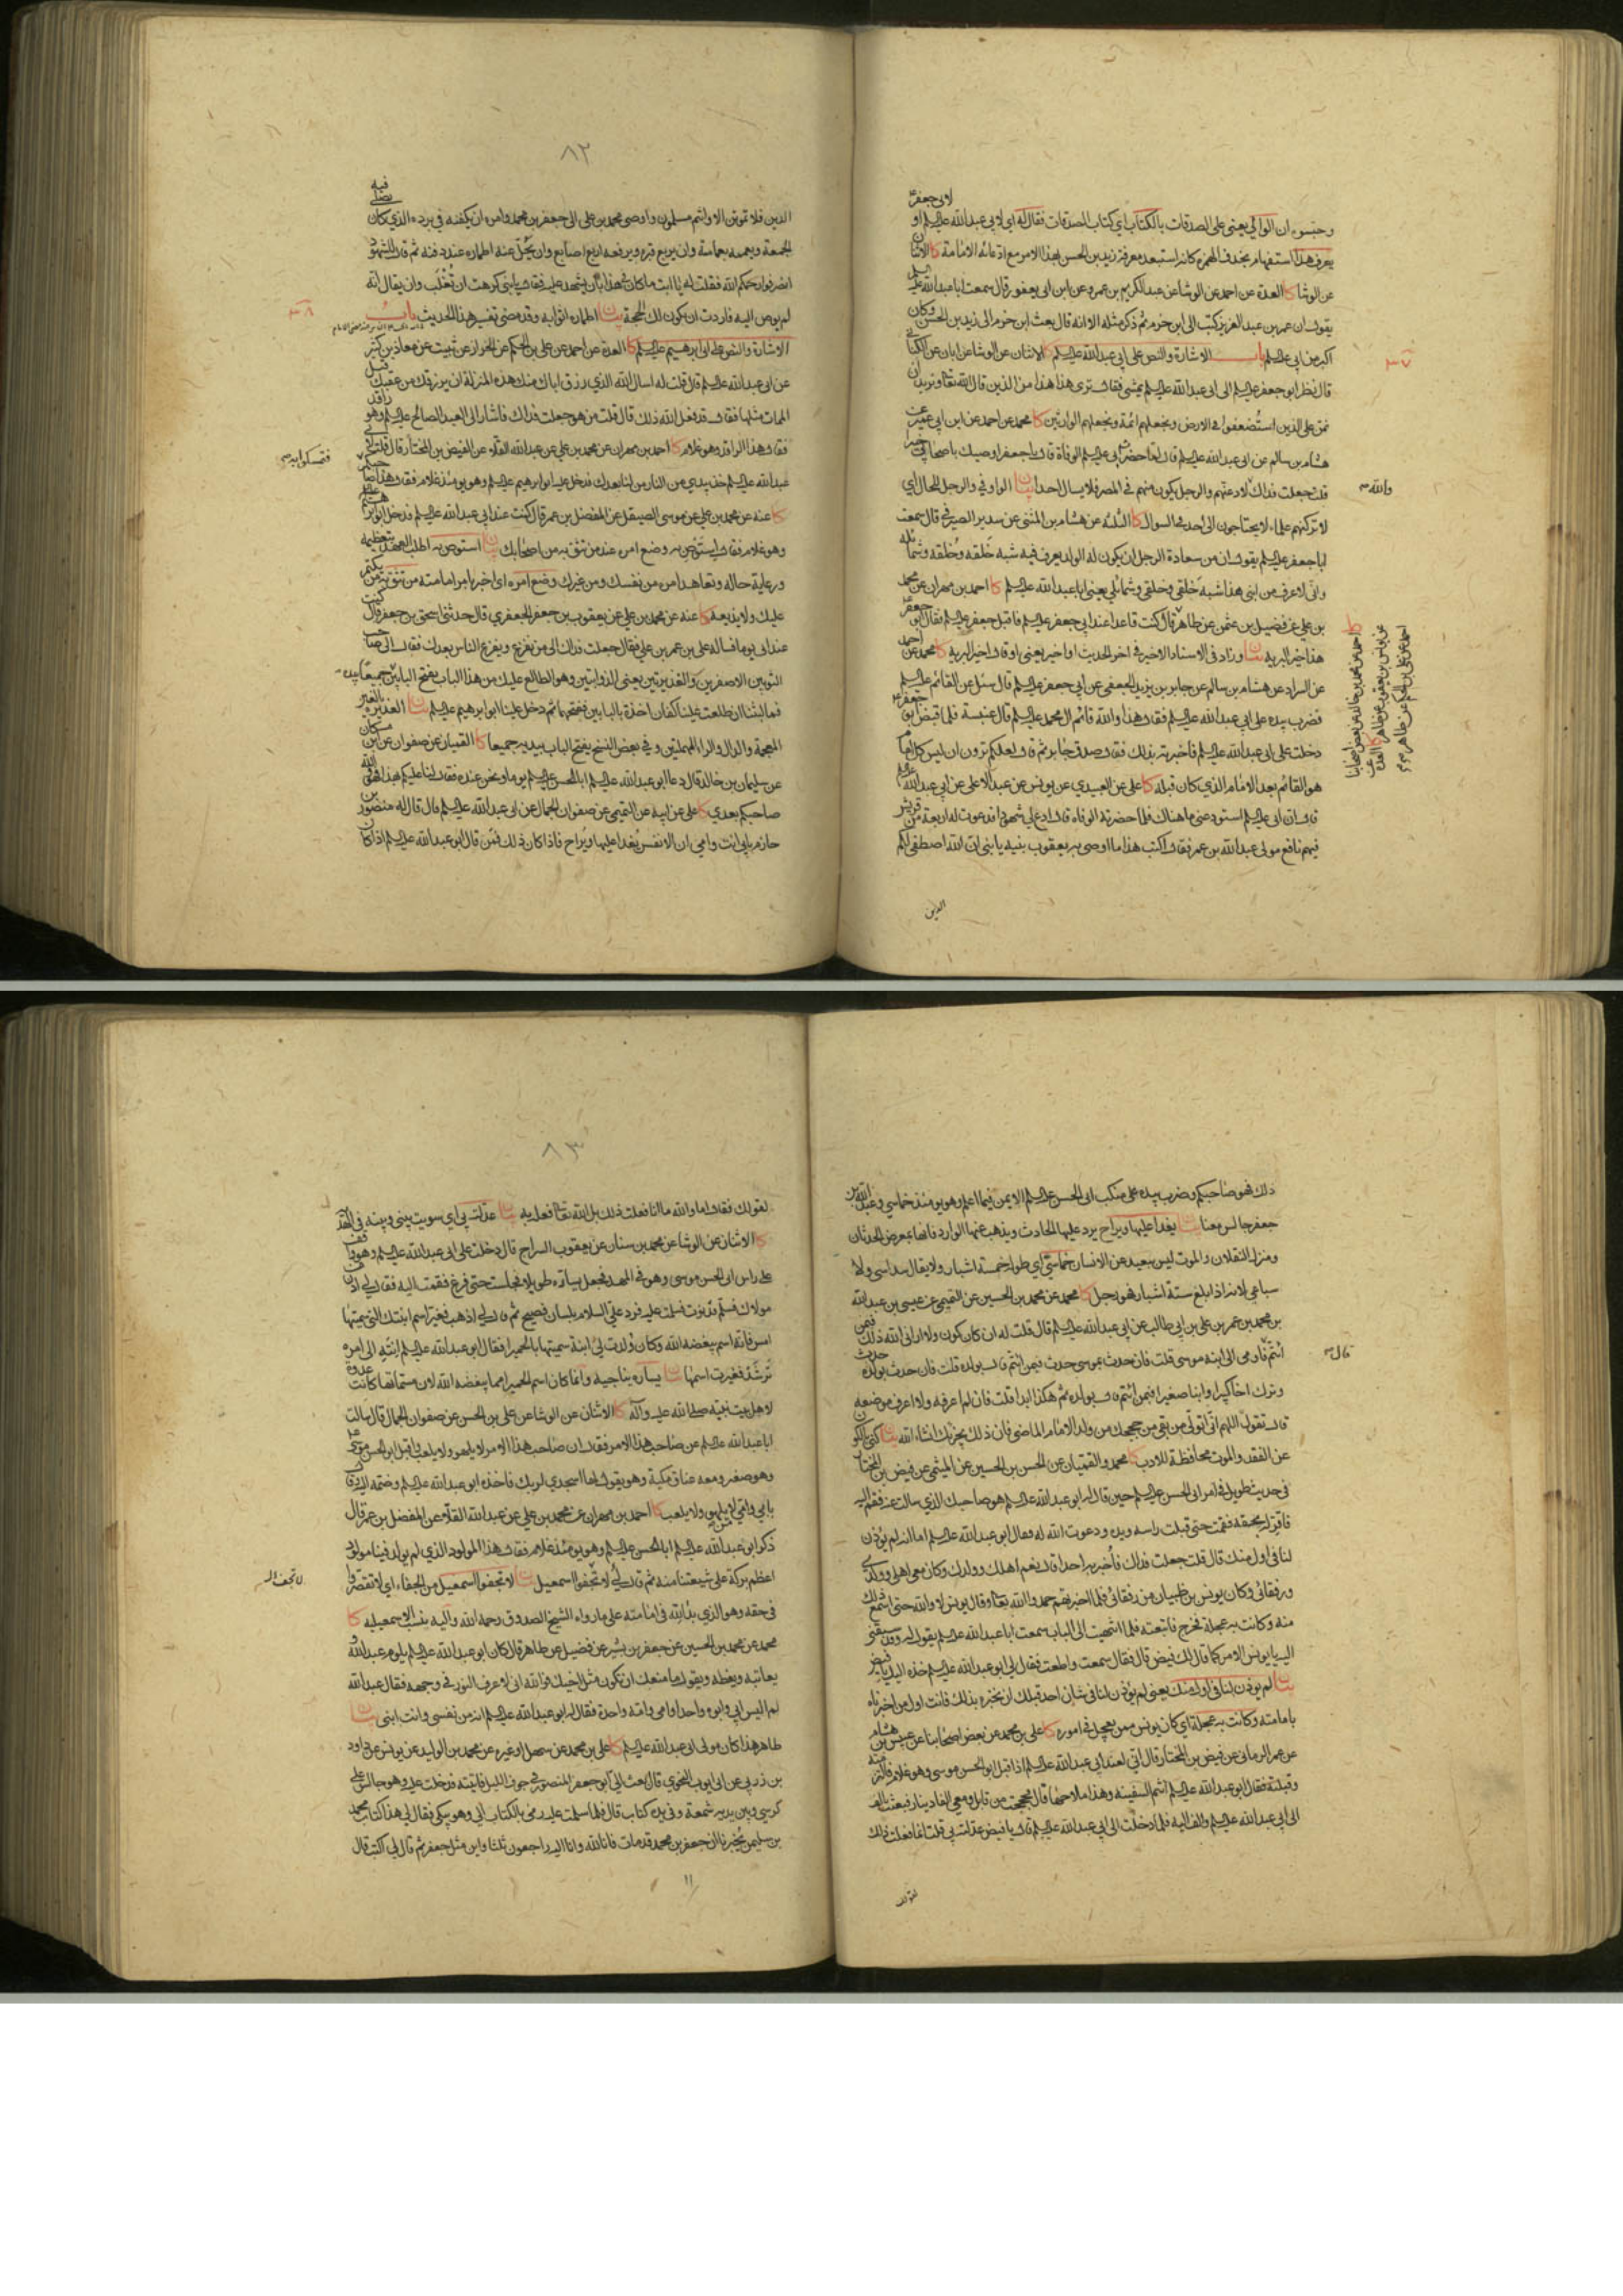 لابي جعفر
وحبسوه ان الوالي يعني على الصدقات بالكتاب اي كتاب الصدقات فقال له اي لابي عبد الله عليلم او
يعرف هذا استفهام بحذف الهمزة كانه استبعد معرفة زيد بن الحسن بهذا الامر مع ادعائه الامامة كا الاثنان
عن الوشا كا العدة عن احمد عن الوشا عن عبد الكريم بن عمرو عن ابن ابي يعفور قال سمعت ابا عبد الله عليه
يقول ان عمر بن عبد العزيز كتب الى ابن حزم ثم ذكر مثله الا انه قال بعث ابن حزم الى زيد بن الحسن وكان
اكبر من ابي عليلم باب الاشارة والنص على ابي عبد الله عليلم كا الاثنان عن الوشا عن ابان عن الكناني
قال نظر ابو جعفر عليلم الى ابي عبد الله عليلم يمشي فقال ترى هذا هذا من الذين قال الله تعا ونريد ان
نمن على الذين استضعفوا في الارض ونجعلهم ائمة ونجعلهم الوارثين كا محمد عن احمد عن ابن ابي عمير عن
هشام بن سالم عن ابي عبد الله عليلم قال لما حضر ابي عليلم الوفاة قال يا جعفر اوصيك باصحابي خيرا
قلت جعلت فداك لادعنهم والرجل يكون منهم في المصر فلا يسال احدا بيان الواو في والرجل للحال اي
والله
لا تركنهم علماء لا يحتاجون الى احد في السوال كا الثلثة عن هشام بن المثنى عن سدير الصيرفي قال سمعت
ابا جعفر عليلم يقول ان من سعادة الرجل ان يكون له الولد يعرف فيه شبه خلقه وخلقه وشمائله
واني لاعرف من ابني هذا شبه خلقي وخلقي وشمائلي يعني ابا عبد الله عليلم كا احمد بن مهران عن محمد
بن علي عن فضيل بن عثمن عن طاهر قال كنت قاعدا عند ابي جعفر عليلم فاقبل جعفر عليلم فقال ابو جعفر
هذا خير البرية بيان وزاد في الاسناد الاخير في اخر الحديث او اخير يعني او قال اخير البرية كا محمد عن احمد
عن السراد عن هشام بن سالم عن جابر بن يزيد الجعفي عن ابي جعفر عليلم قال سئل عن القائم عليلم
فضرب بيده على ابي عبد الله عليلم فقال هذا والله قائم ال محمد عليلم قال عنبسة فلما قبض ابو جعفر
دخلت على ابي عبد الله عليلم فاخبرته بذلك فقال صدق جابر ثم قال لعلكم ترون ان ليس كل امام
هو القائم بعد الامام الذي كان قبله كا علي عن العبيدي عن يونس عن عبد الاعلى عن ابي عبد الله
قال ان ابي عليلم استودعني ما هناك فلما حضرته الوفاة قال ادع لي شهودا فدعوت له اربعة من قريش
فيهم نافع مولى عبد الله بن عمر فقال اكتب هذا ما اوصى به يعقوب بنيه يا بني ان الله اصطفى لكم
الدين
٣٧
كا احمد عن محمد بن خالد عن بعض اصحابنا
عن يونس بن يعقوب عن طاهر كا العدة عن
احمد عن علي بن الحكم عن طاهر
٨٢
الدين فلا تموتن الا وانتم مسلمون واوصى محمد بن علي الى جعفر بن محمد وامره ان يكفنه في برده الذي كان يصلي فيه
الجمعة ويعممه بعمامته وان يربع قبره ويرفعه اربع اصابع وان يحل عنه اطماره عند دفنه ثم قال للشهود
انصرفوا رحمكم الله فقلت له يا ابت ما كان في هذا بان يشهد عليه فقال يا بني كرهت ان تغلب وان يقال انه
لم يوص اليه فاردت ان يكون لك الحجة بيان اطماره اثوابه وقد مضى تفسير هذا الحديث باب
٣٨
الاشارة والنص على ابي ابرهيم عليلم كا العدة عن احمد عن علي بن الحكم عن الخزاز عن ثبيت عن معاذ بن كثير
عن ابي عبد الله عليلم قال قلت له اسال الله الذي رزق اباك منك هذه المنزلة ان يرزقك من عقبك قبل
الممات مثلها فقال قد فعل الله ذلك قال قلت من هو جعلت فداك فاشار الى العبد الصالح عليلم وهو راقد
فقال هذا الراقد وهو غلام كا احمد بن مهران عن محمد بن علي عن عبد الله القلاء عن الفيض بن المختار قال قلت لابي
عبد الله عليلم خذ بيدي من النار من لنا بعدك فدخل عليه ابو ابرهيم عليلم وهو يومئذ غلام فقال هذا صاحبكم
فتمسكوا به
كا عنه عن محمد بن علي عن موسى الصيقل عن المفضل بن عمر قال كنت عند ابي عبد الله عليلم فدخل ابو ابرهيم
وهو غلام فقال استوص به وضع امره عند من تثق به من اصحابك بيان استوص به اطلب العهد بتعظيمه
ورعاية حاله وتعاهد امره من نفسك ومن غيرك وضع امره اي اخبر بامر امامته من تثق به من يكتم
عليك ولا يذيعه كا عنه عن محمد بن علي عن يعقوب بن جعفر الجعفري قال حدثني اسحق بن جعفر قال كنت
عند ابي يوما فساله علي بن عمر بن علي فقال جعلت فداك الى من نفزع ويفزع الناس بعدك فقال الى صاحب
الثوبين الاصفرين والغديرتين يعني الذوابتين وهو الطالع عليك من هذا الباب يفتح البابين جميعا بيده
فما لبثنا ان طلعت علينا كفان اخذة بالبابين ففتحهما ثم دخل علينا ابو ابرهيم عليلم بيان الغديره بالغين
المعجمة والدال والراء المهملتين وفي بعض النسخ يفتح الباب بيديه جميعا كا القميان عن صفوان عن ابن مسكان
عن سليمان بن خالد قال دعا ابو عبد الله عليلم ابا الحسن عليلم يوما ونحن عنده فقال لنا عليكم بهذا فهو والله
صاحبكم بعدي كا علي عن ابيه عن التميمي عن صفوان الجمال عن ابي عبد الله عليلم قال قال له منصور بن
حازم بابي انت وامي ان الانفس يغدا عليها ويراح فاذا كان ذلك فمن قال ابو عبد الله عليلم اذا كان
ذلك فهو صاحبكم وضرب بيده على منكب ابي الحسن عليلم الايمن فيما اعلم وهو يومئذ خماسي وعبد الله بن
جعفر جالس معنا بيان يغدا عليها ويراح يرد عليها الحادث ويذهب عنها الوارد فانها بمعرض الحدثان
ومنزل النقلان والموت ليس ببعيد عن الانسان خماسي اي طوله خمسة اشبار ولا يقال سداسي ولا
سباعي لانه اذا بلغ ستة اشبار فهو رجل كا محمد عن محمد بن الحسين عن التميمي عن عيسى بن عبد الله
بن محمد بن عمر بن علي بن ابي طالب عن ابي عبد الله عليلم قال قلت له ان كان كون ولا اراني الله ذلك فبمن
ائتم فاومى الى ابنه موسى قلت فان حدث بموسى حدث فبمن ائتم قال بولده قلت فان حدث بولده حدث
قال
وترك اخا كبيرا وابنا صغيرا فبمن ائتم قال بولده ثم هكذا ابدا قلت فان لم اعرفه ولا اعرف موضعه
قال تقول اللهم اني اتولى من بقي من حججك من ولد الامام الماضي فان ذلك يجزيك انشاء الله بيان كنى بالكون
عن الفقد والموت محافظة للادب كا محمد والقميان عن الحسن بن الحسين عن الميثمي عن فيض بن المختار
في حديث طويل في امر ابي الحسن عليلم حين قال له ابو عبد الله عليلم هو صاحبك الذي سالت عنه فقم اليه
فاقر له بحقه فقمت حتى قبلت راسه ويده ودعوت الله له فقال ابو عبد الله عليلم اما انه لم يؤذن
لنا في اول منك قال قلت جعلت فداك فاخبر به احدا قال نعم اهلك وولدك وكان معي اهلي وولدي
ورفقائي وكان يونس بن ظبيان من رفقائي فلما اخبرتهم حمدوا الله تعا وقال يونس لا والله حتى اسمع ذلك
منه وكانت به عجلة فخرج فاتبعته فلما انتهيت الى الباب سمعت ابا عبد الله عليلم يقول له وقد سبقني
اليه يا يونس الامر كما قال لك فيض قال فقال سمعت واطعت فقال لي ابو عبد الله عليلم خذه اليك يا فيض
بيان لم يؤذن لنا في اول منك يعني لم يؤذن لنا في شان احد قبلك ان نخبره بذلك فانت اول من اخبرناه
بامامته وكانت به عجلة اي كان يونس ممن يعجل في اموره كا علي بن محمد عن بعض اصحابنا عن عبيس بن هشام
عن عمر الرماني عن فيض بن المختار قال اني لعند ابي عبد الله عليلم اذ اقبل ابو الحسن موسى وهو غلام فالتزمته
وقبلته فقال ابو عبد الله عليلم انتم السفينة وهذا ملاحها قال فحججت من قابل ومعي الفا دينار فبعثت بالف
الى ابي عبد الله عليلم والف اليه فلما دخلت الى ابي عبد الله عليلم قال يا فيض عدلته بي قلت انما فعلت ذلك
لقولك
٨٣
لقولك فقال اما والله ما انا فعلت ذلك بل الله تعا فعله به بيان عدلته بي اي سويت بيني وبينه في القدر
كا الاثنان عن الوشا عن محمد بن سنان عن يعقوب السراج قال دخلت على ابي عبد الله عليلم وهو واقف
على راس ابي الحسن موسى وهو في المهد فجعل يساره طويلا فجلست حتى فرغ فقمت اليه فقال لي ادن من
مولاك فسلم فدنوت فسلمت عليه فرد علي السلام بلسان فصيح ثم قال لي اذهب فغير اسم ابنتك التي سميتها
امس فانه اسم يبغضه الله وكان ولدت لي ابنة سميتها بالحميرا فقال ابو عبد الله عليلم انته الى امره
ترشد فغيرت اسمها بيان يساره يناجيه وانما كان اسم الحميرا مما يبغضه الله لان مسماتها كانت عدوة
لاهل بيت نبيه صلى الله عليه وآله كا الاثنان عن الوشا عن علي بن الحسن عن صفوان الجمال قال سالت
ابا عبد الله عليلم عن صاحب هذا الامر فقال ان صاحب هذا الامر لا يلهو ولا يلعب واقبل ابو الحسن موسى
وهو صغير ومعه عناق مكية وهو يقول لها اسجدي لربك فاخذه ابو عبد الله عليلم وضمه اليه وقال
بابي وامي من لا يلهو ولا يلعب كا احمد بن مهران عن محمد بن علي عن عبد الله القلاء عن المفضل بن عمر قال
ذكر ابو عبد الله عليلم ابا الحسن عليلم وهو يومئذ غلام فقال هذا المولود الذي لم يولد فينا مولود
اعظم بركة على شيعتنا منه ثم قال لي لا تجفوا اسمعيل بيان لا تجفوا اسمعيل من الجفاء اي لا تقصروا
في حقه وهو الذي بدا لله في امامته على ما رواه الشيخ الصدوق رحمه الله واليه ينسب الاسمعيليه كا
محمد عن محمد بن الحسين عن جعفر بن بشير عن فضيل عن طاهر قال كان ابو عبد الله عليلم يلوم عبد الله و
يعاتبه ويعظه ويقول ما منعك ان تكون مثل اخيك فوالله اني لاعرف النور في وجهه فقال عبد الله
لم اليس ابي وابوه واحدا وامي وامه واحدة فقال له ابو عبد الله عليلم انه من نفسي وانت ابني بيان
طاهر هذا كان مولى ابي عبد الله عليلم كا علي بن محمد عن سهل او غيره عن محمد بن الوليد عن يونس عن داود
بن زربي عن ابي ايوب النحوي قال بعث الي ابو جعفر المنصور في جوف الليل فاتيته فدخلت عليه وهو جالس على
كرسي وبين يديه شمعة وفي يده كتاب قال فلما سلمت عليه رمى بالكتاب الي وهو يبكي فقال لي هذا كتاب محمد
بن سليمن يخبرنا ان جعفر بن محمد قد مات فانا لله وانا اليه راجعون ثلثا واين مثل جعفر ثم قال لي اكتب قال
١١